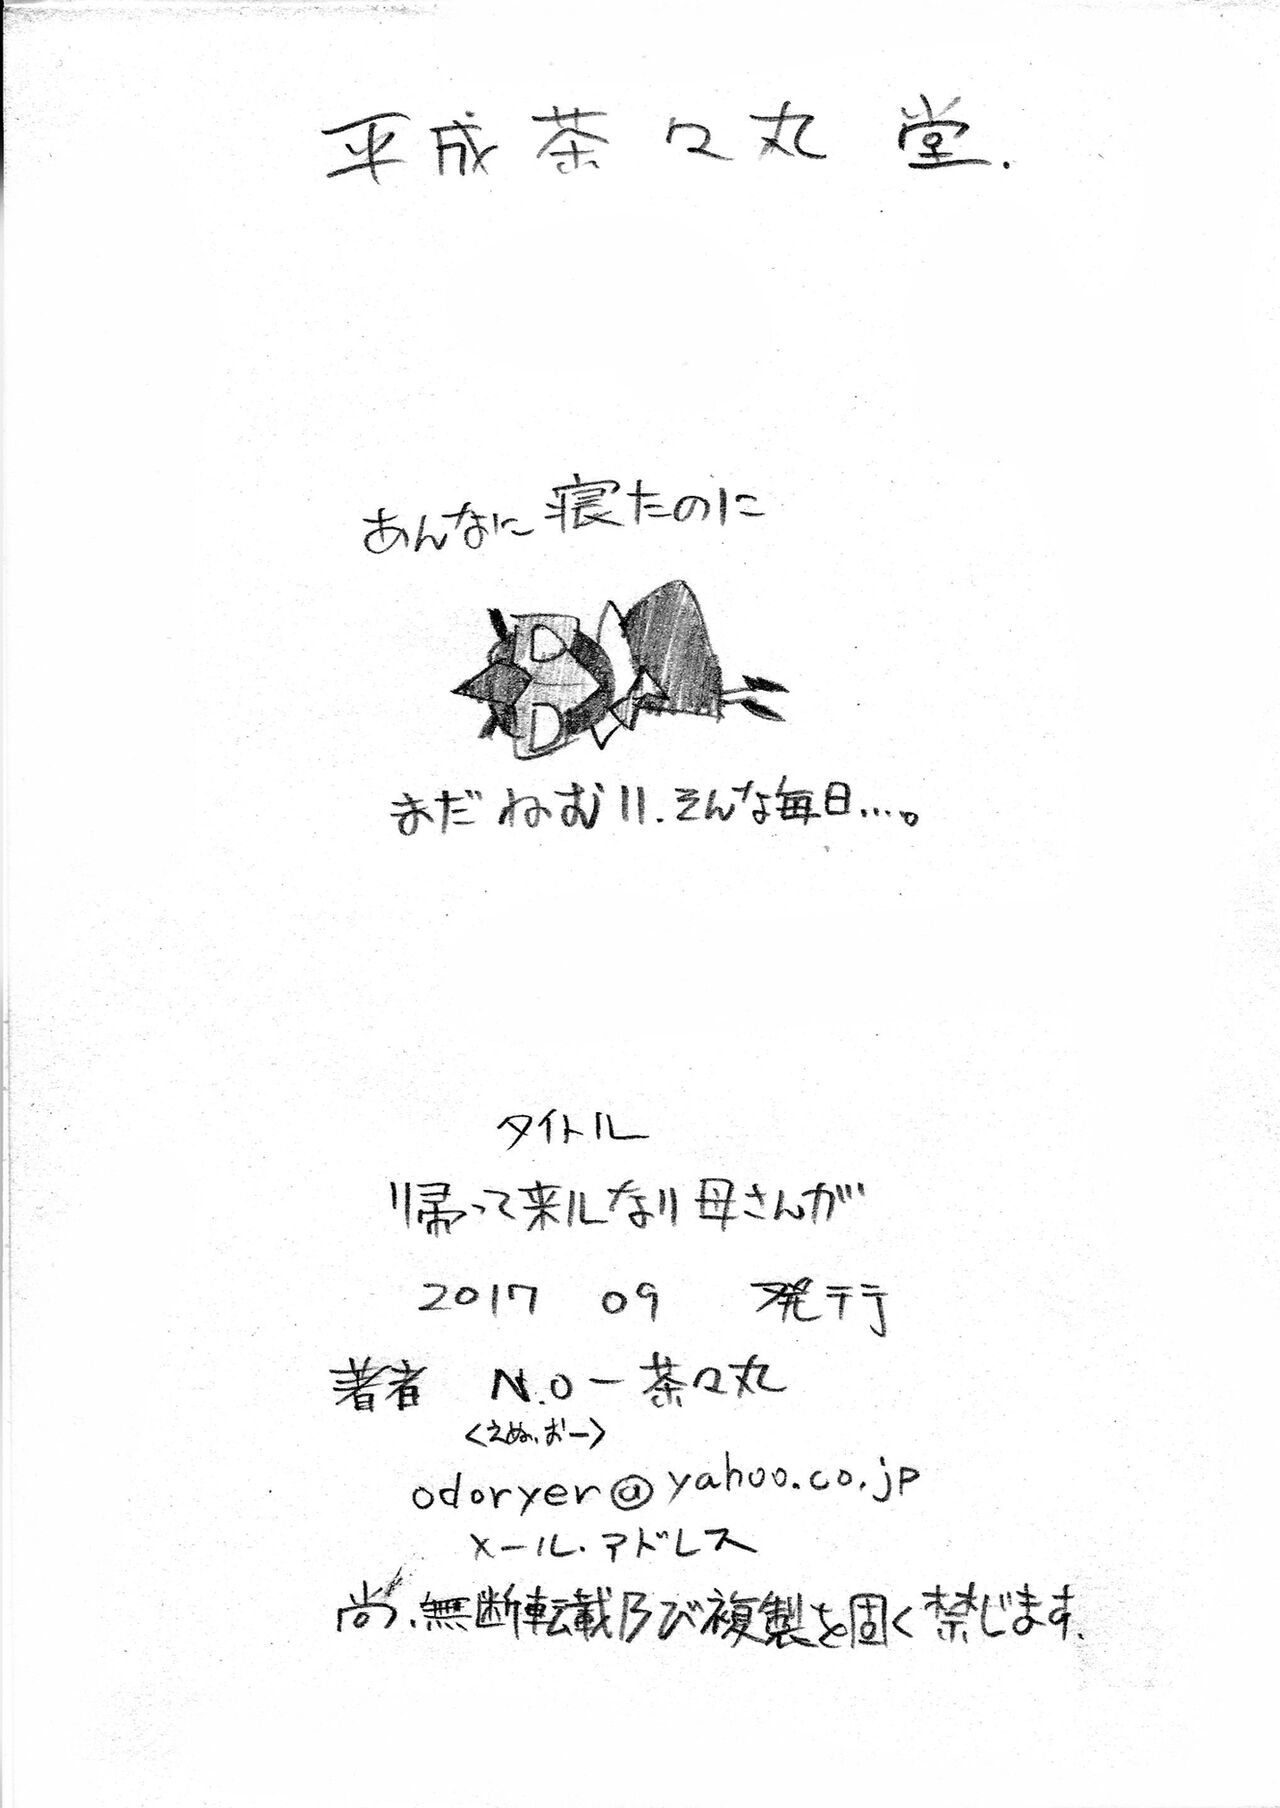 平成茶々丸堂.
あんなに寝たのに
まだねむい.そんな毎日...。
タイトル
い帰って来ルない母さんが
2017 09 発行
著者 N.O-茶々丸
<えぬ.おー>
odoryer@yahoo.co.jp
メール.アドレス
尚、無断転載及び複製を固く禁じます.